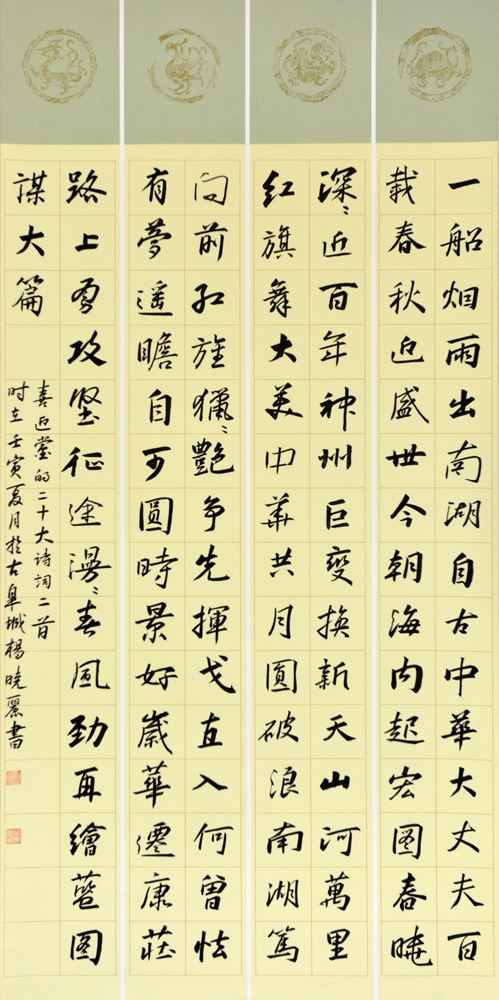 一船烟雨出南湖自古中華大丈夫百
載春秋迎盛世今朝海内起宏图春曉
深〻近百年神州巨變换新天山河萬里
红旗舞大美中華共月圓破浪南湖篤
向前红旌獵〻艷争先揮戈直入何曾怯
有夢遥瞻自可圓時景好歲華遷康莊
路上勇攻堅征途漫〻春風勁再繪藍图
謀大篇
喜迎黨的二十大诗词二首
时在壬寅夏月於古阜城楊晓麗書